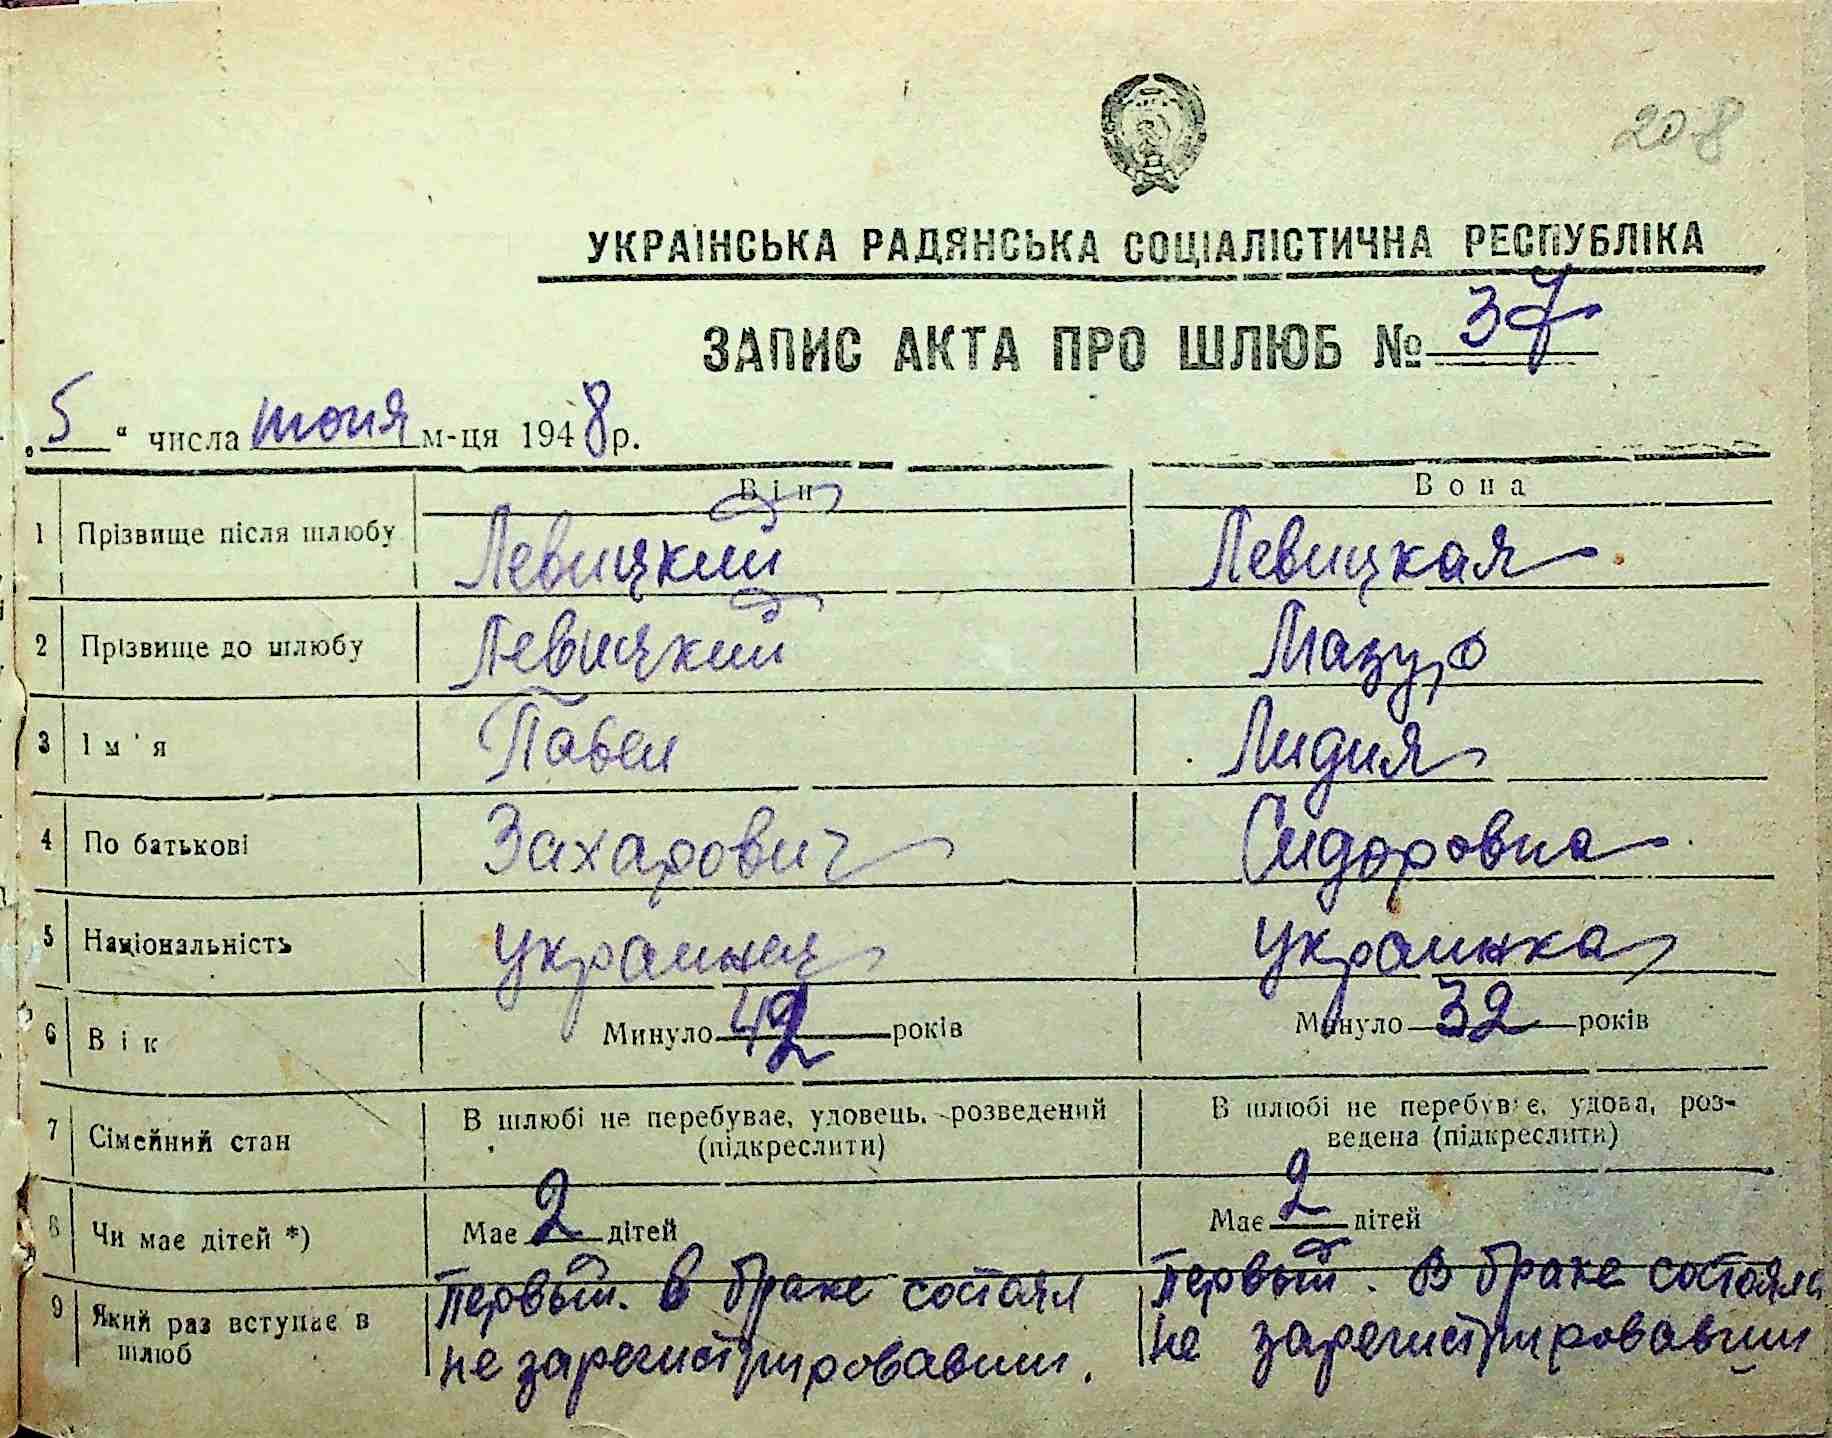 208
УКРАЇНСЬКА РАДЯНСЬКА СОЦІАЛІСТИЧНА РЕСПУБЛІКА
ЗАПИС АКТА ПРО ШЛЮБ № 37
„5“ числа июня м-ця 1948 р.
Він Вона
1 Прізвище після шлюбу Левицкий Левицкая
2 Прізвище до шлюбу Левицкий Мазур
3 Ім'я Павел Лидия
4 По батькові Захарович Сидоровна
5 Національність украинец украинка
6 Вік Минуло 42 років Минуло 32 років
7 Сімейний стан В шлюбі не перебуває, удовець, розведений В шлюбі не перебуває, удова, роз-
(підкреслити) ведена (підкреслити)
8 Чи має дітей *) Має 2 дітей Має 2 дітей
9 Який раз вступає в Первый. В браке состоял Первый. В браке состояла
шлюб не зарегистрировавши. не зарегистрировавши